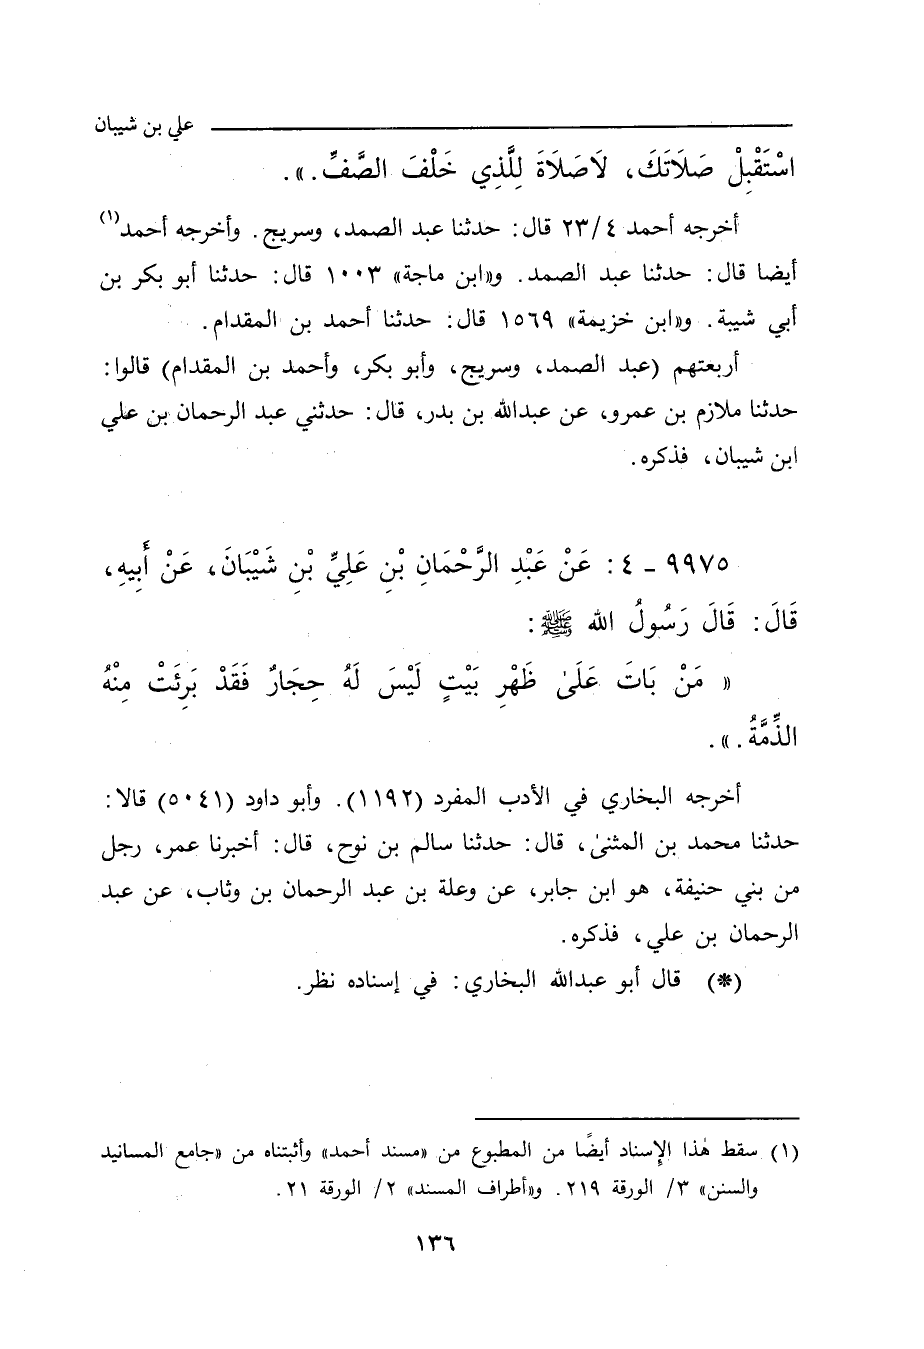 علي بن شيبان
اسْتَقْبِلْ صَلَاتَكَ، لَاصَلَاةَ لِلَّذِي خَلْفَ الصَّفِّ.».
أخرجه أحمد ٢٣/٤ قال: حدثنا عبد الصمد، وسريج. وأخرجه أحمد(١)
أيضا قال: حدثنا عبد الصمد. و«ابن ماجة» ١٠٠٣ قال: حدثنا أبو بكر بن
أبي شيبة. و«ابن خزيمة» ١٥٦٩ قال: حدثنا أحمد بن المقدام.
أربعتهم (عبد الصمد، وسريج، وأبو بكر، وأحمد بن المقدام) قالوا:
حدثنا ملازم بن عمرو، عن عبدالله بن بدر، قال: حدثني عبد الرحمان بن علي
ابن شيبان، فذكره.
٩٩٧٥ - ٤: عَنْ عَبْدِ الرَّحْمَانِ بْنِ عَلِيِّ بْنِ شَيْبَانَ، عَنْ أَبِيهِ،
قَالَ: قَالَ رَسُولُ الله ﷺ:
« مَنْ بَاتَ عَلَىٰ ظَهْرِ بَيْتٍ لَيْسَ لَهُ حِجَارٌ فَقَدْ بَرِئَتْ مِنْهُ
الذِّمَّةُ.».
أخرجه البخاري في الأدب المفرد (١١٩٢). وأبو داود (٥٠٤١) قالا:
حدثنا محمد بن المثنىٰ، قال: حدثنا سالم بن نوح، قال: أخبرنا عمر، رجل
من بني حنيفة، هو ابن جابر، عن وعلة بن عبد الرحمان بن وثاب، عن عبد
الرحمان بن علي، فذكره.
(*) قال أبو عبدالله البخاري: في إسناده نظر.
(١) سقط هٰذا الإِسناد أيضًا من المطبوع من «مسند أحمد» وأثبتناه من «جامع المسانيد
والسنن» ٣/ الورقة ٢١٩. و«أطراف المسند» ٢/ الورقة ٢١.
١٣٦